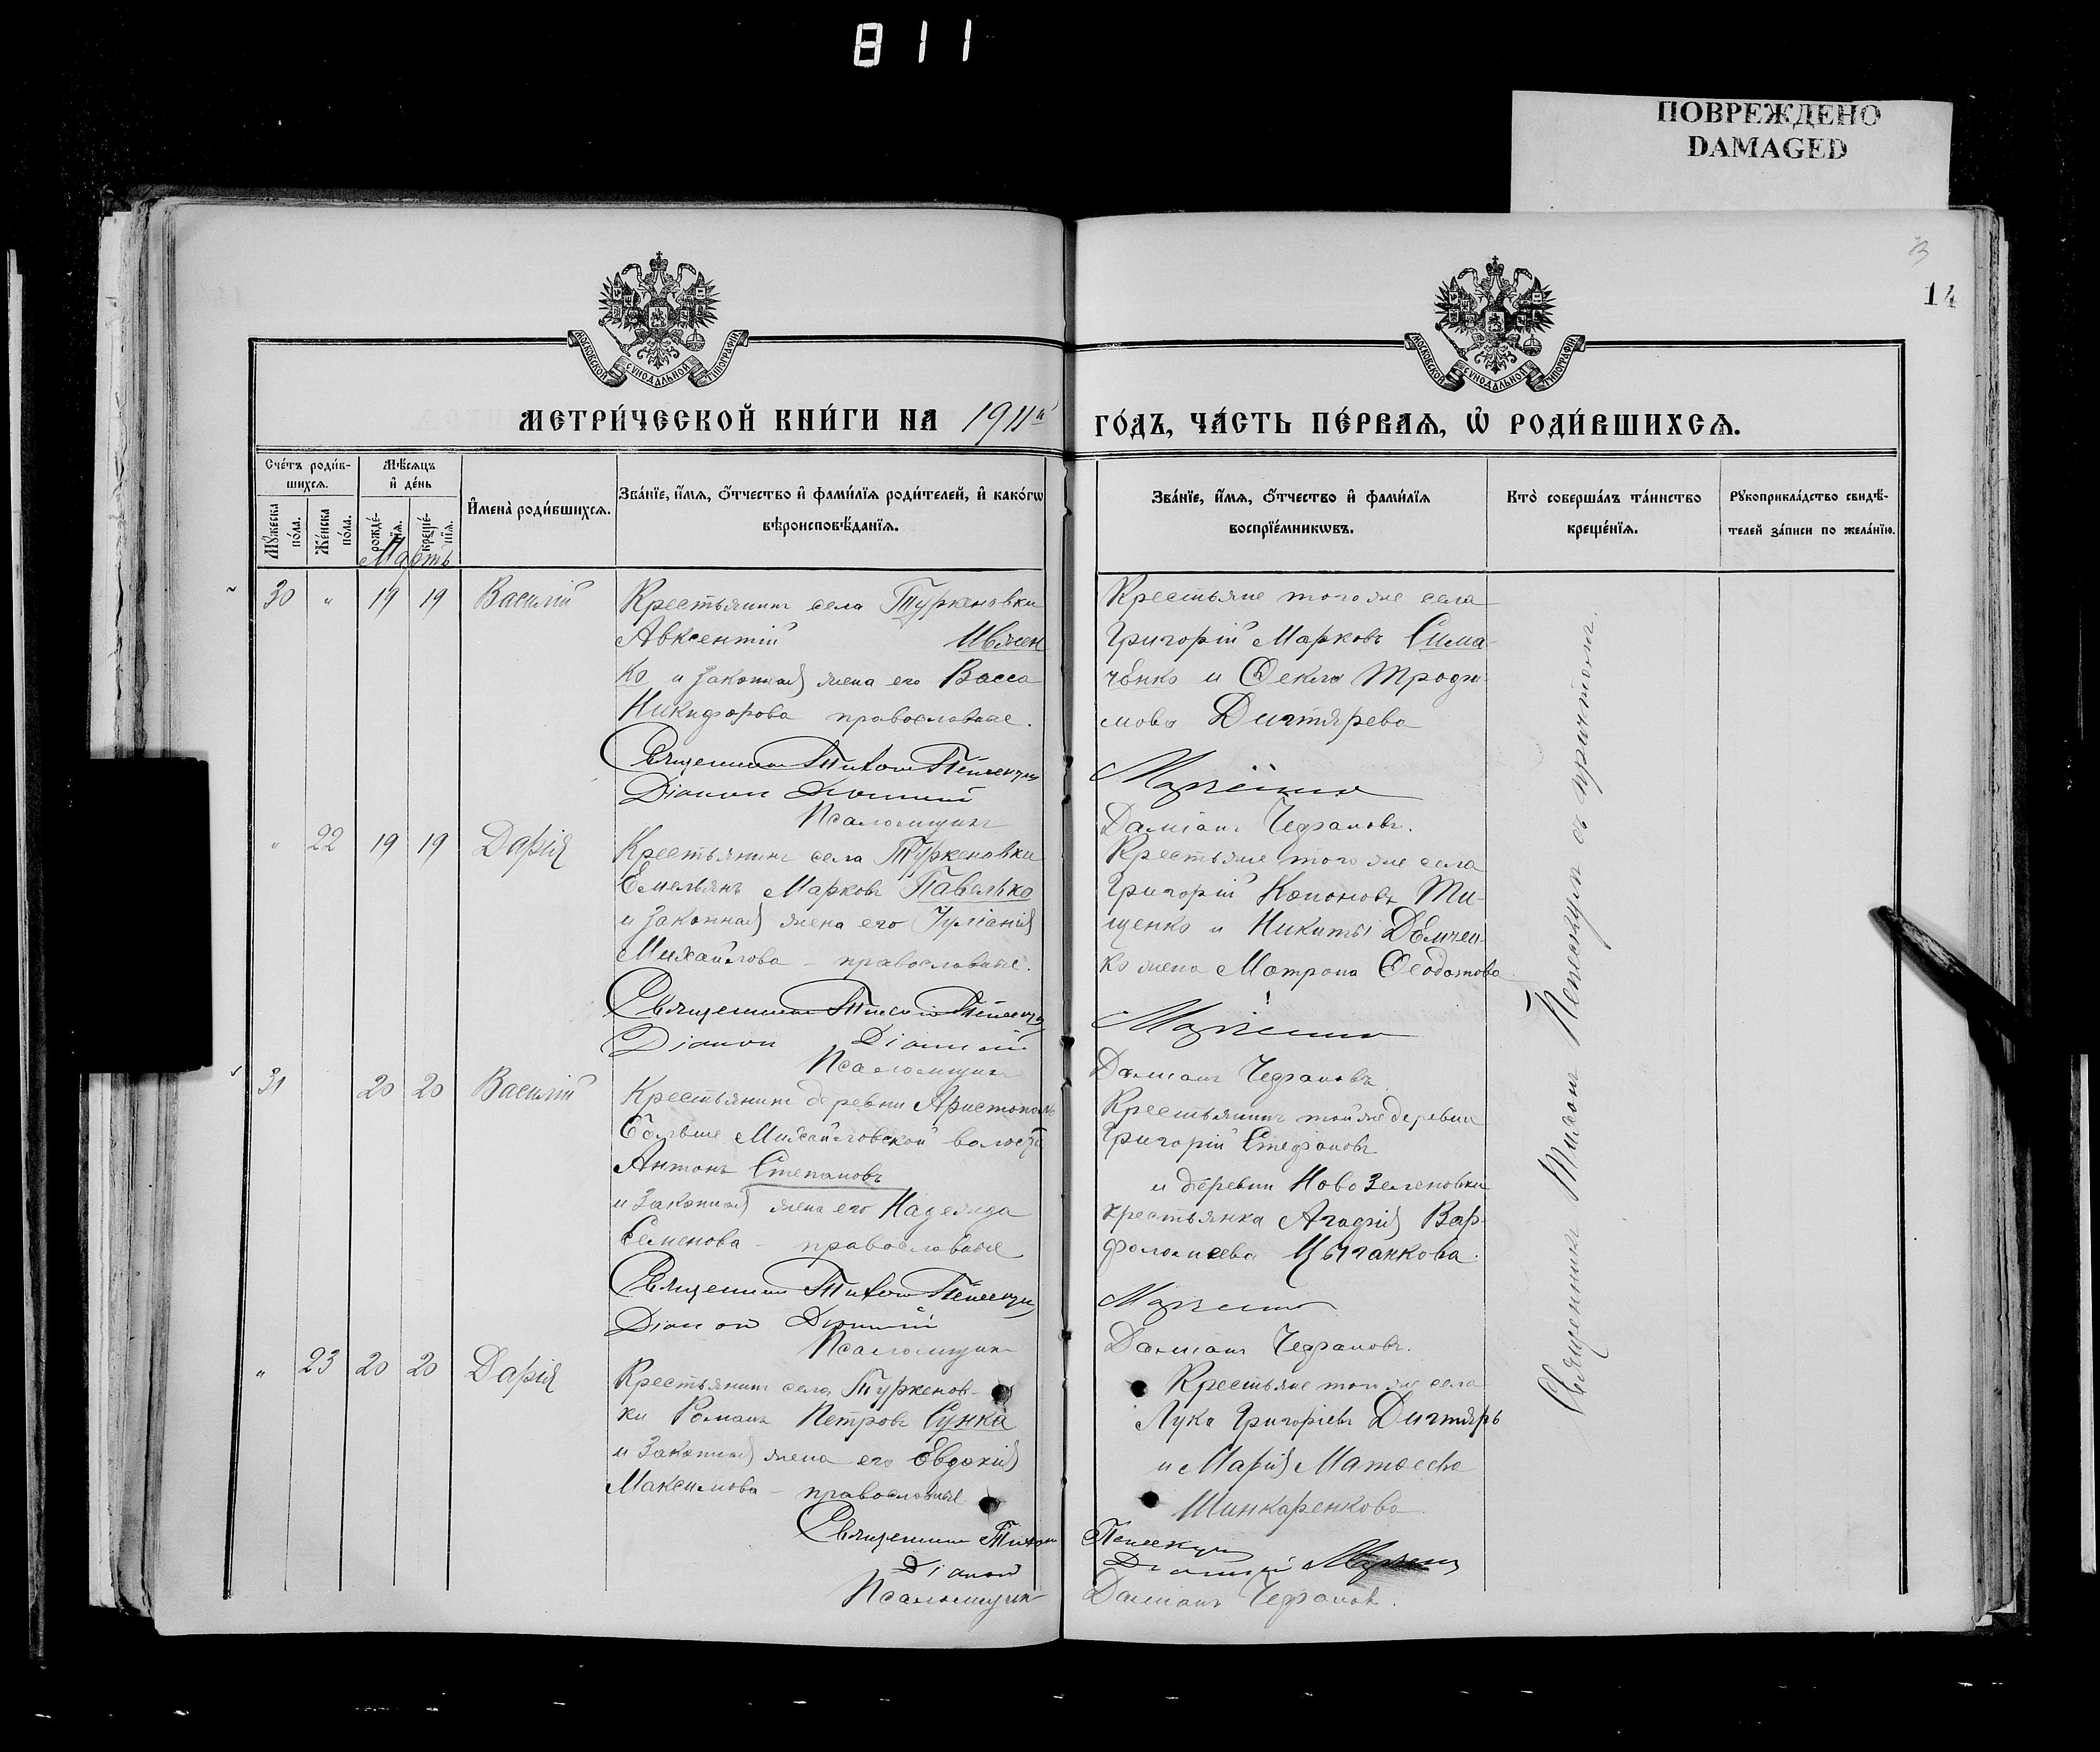 811
ПОВРЕЖДЕНО
DAMAGED
14
МОСКОВСКОЙ СУНОДАЛЬНОЙ ТИПОГРАФІИ
МОСКОВСКОЙ СУНОДАЛЬНОЙ ТИПОГРАФІИ
МЕТРИ́ЧЕСКОЙ КНИ́ГИ НА 1911й
ГО́ДЪ, ЧА́СТЬ ПЕ́РВАѦ, Ѡ҆ РОДИ́ВШИХСѦ.
Сче́тъ роди́в-
шихсѧ.
Мꙋжеска по́ла.
Же́нска по́ла.
Мѣ́сѧцъ
и҆ де́нь
рожде́-нїѧ.
креще́-нїѧ.
И҆мена̀ роди́вшихсѧ.
Зва́нїе, и҆́мѧ, ѻ҆́тчество и҆ фами́лїѧ роди́телей, и҆ како́гѡ
вѣроисповѣ́данїѧ.
Зва́нїе, и҆́мѧ, ѻ҆́тчество и҆ фами́лїѧ
воспрїе́мникѡвъ.
Кто̀ соверша́лъ та́инство
креще́нїѧ.
Рꙋкоприкла́дство свидѣ́-
телей за́писи по жела́нїю.
Мартъ
30 " 19 19 Василій
Крестьянинъ села Туркеновки
Авксентій Ивжен
ко и законная жена его Васса
Никифорова православные.
Священникъ Тихонъ
Діаконъ
Псаломщикъ
Крестьяне того же села
Григорій Марковъ Сима-
ченко и Ѳекла Троди-
мова Дигтярева
Даміанъ Чефрановъ.
" 22 19 19 Дарія
Крестьянинъ села Туркеновки
Емельянъ Марковъ Павелко
и законная жена его Іуліанія
Михайлова - православные.
Священникъ Тихонъ
Діаконъ
Псаломщикъ
Крестьяне того же села
Григорій Кононовъ Ти-
щенко и Никиты Демчен-
ко жена Матрона Ѳеодотова
Даміанъ Чефрановъ
31 20 20 Василій
Крестьянинъ деревни Аристополь
Больше Михайловской волости
Антонъ Степановъ
и законная жена его Надежда
Семенова - православные
Священникъ Тихонъ
Діаконъ
Псаломщикъ
Крестьянинъ той же деревни
Григорій Стефановъ
и деревни Ново Зеленовки
крестьянка Агафія Вар-
фоломеева Цыганкова.
Даміанъ Чефрановъ.
" 23 20 20 Дарія
Крестьянинъ села Туркенов-
ки Романъ Петровъ Сунка
и законная жена его Евдокія
Максимова - православные
Священникъ Тихонъ
Діаконъ
Псаломщикъ
Крестьяне того же села
Лука Григоріевъ Дигтярь
и Марія Матвеева
Шинкаренкова
Даміанъ Чефрановъ.
Священникъ Тихонъ с причтомъ.